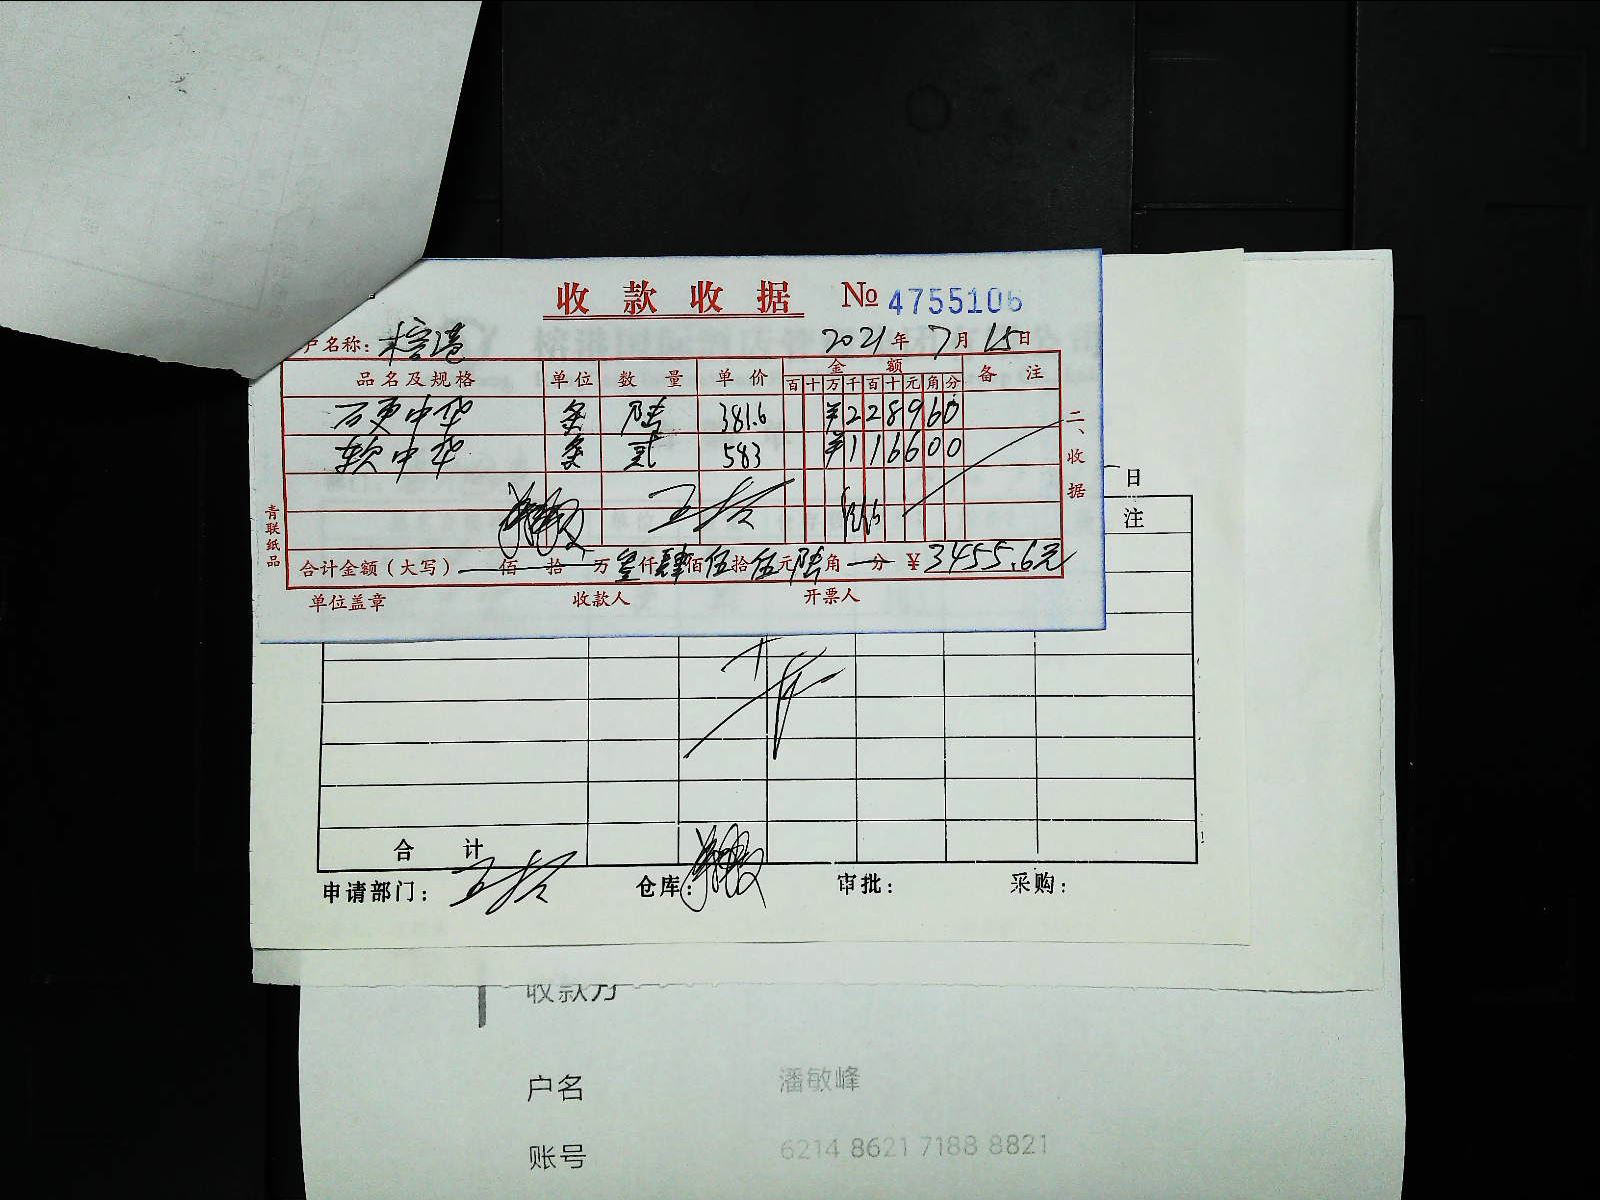 收款收据 № 4755106
户名称：榕港 2021年7月15日
品名及规格 单位 数量 单价 金额 备注
百十万千百十元角分
硬中华 条 陆 381.6 ¥228960
软中华 条 贰 583 ¥116600
二、收据
青联纸品
合计金额（大写） 佰 拾 万 叁仟肆佰伍拾伍元陆角 分 ¥3455.6元
单位盖章 收款人 开票人
日
注
合计
申请部门： 仓库： 审批： 采购：
收款方
户名 潘敏峰
账号 6214 8621 7188 8821